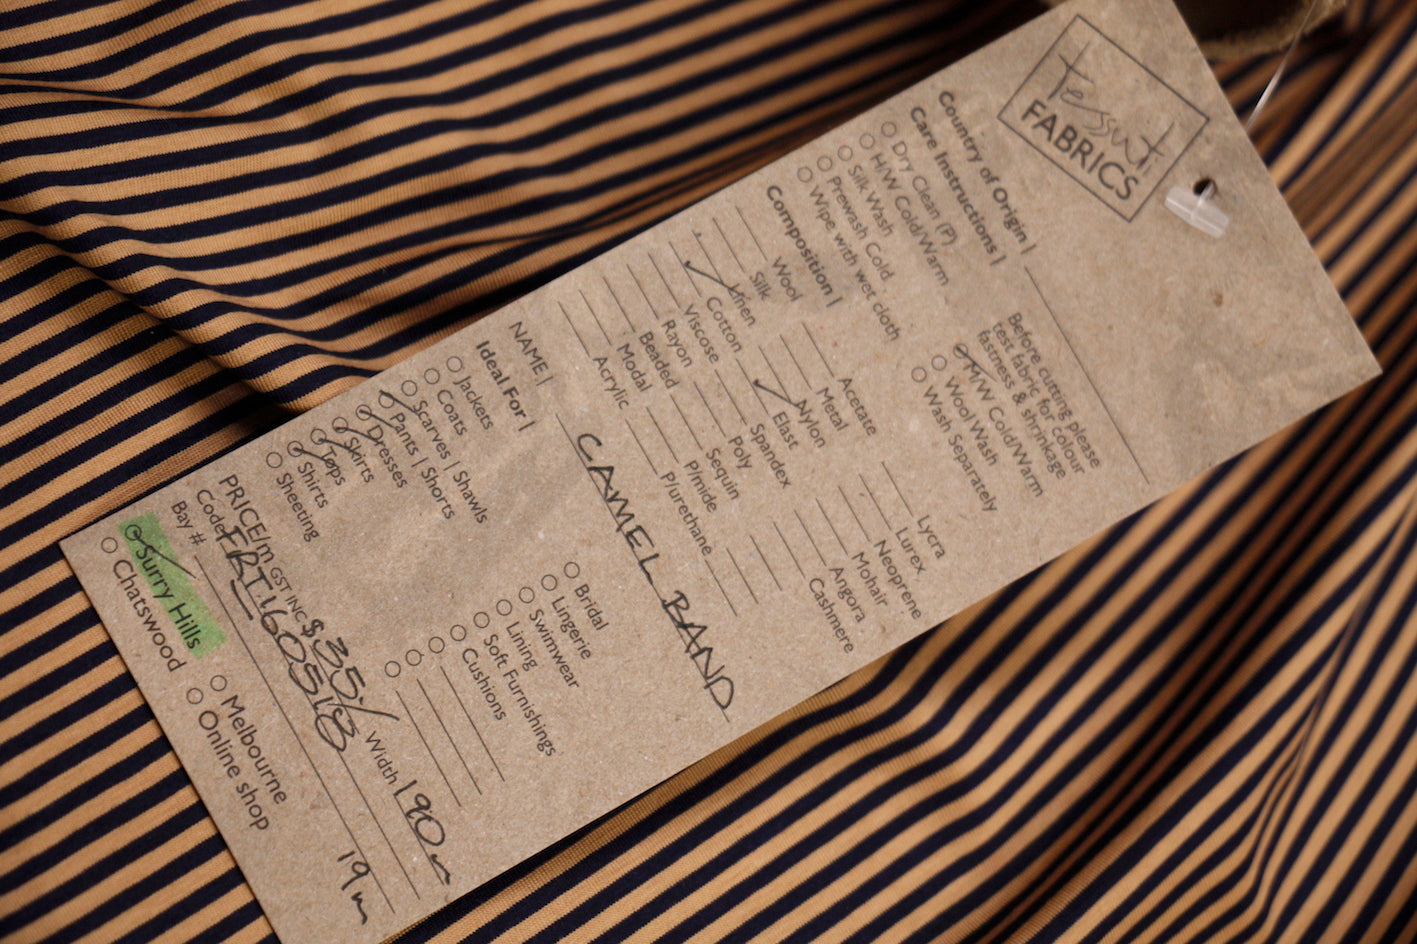 tessuti
FABRICS
Country of Origin |
Care Instructions |
Before cutting please
test fabric for colour
fastness & shrinkage
Dry Clean (P)
H/W Cold/Warm
Silk Wash
Prewash Cold
Wipe with wet cloth
M/W Cold/Warm
Wool Wash
Wash Separately
Composition |
Wool
Silk
Linen
Cotton
Viscose
Rayon
Beaded
Modal
Acrylic
Acetate
Metal
Nylon
Elast
Spandex
Poly
Sequin
P/mide
P/urethane
Lycra
Lurex
Neoprene
Mohair
Angora
Cashmere
NAME | CAMEL BAND
Ideal For |
Jackets
Coats
Scarves | Shawls
Pants | Shorts
Dresses
Skirts
Tops
Shirts
Sheeting
Bridal
Lingerie
Swimwear
Lining
Soft Furnishings
Cushions
PRICE/m GST INC $35./ Width 190m
Code FRT160518
Bay # 19m
Surry Hills
Chatswood
Melbourne
Online shop